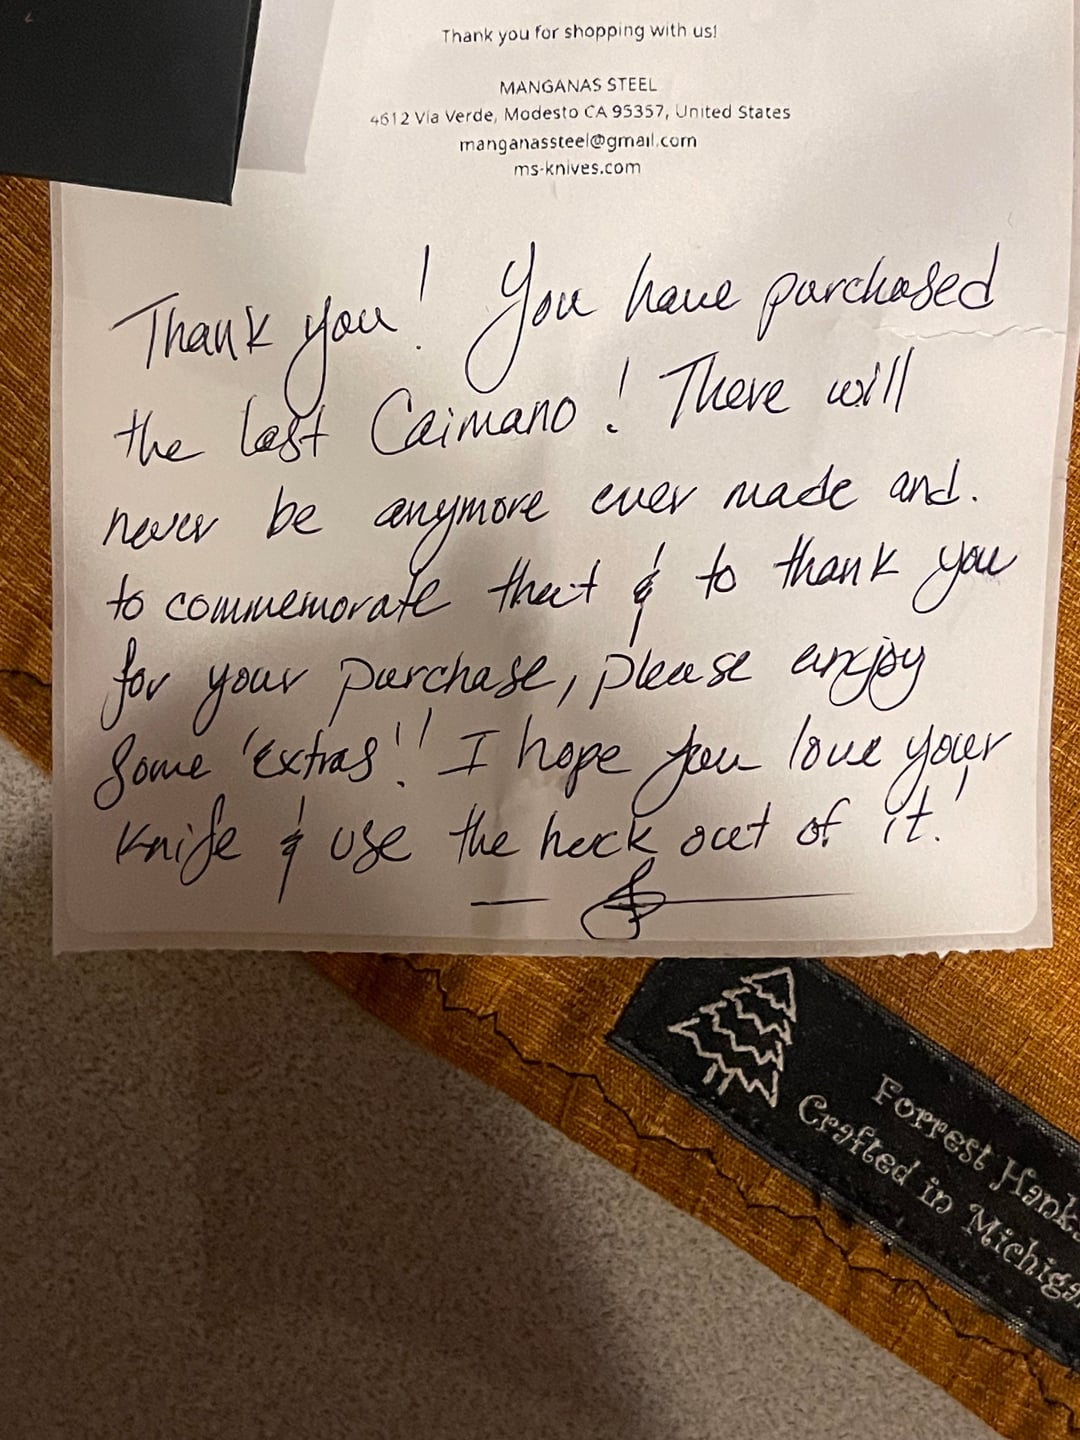 Thank you for shopping with us!
MANGANAS STEEL
4612 Via Verde, Modesto CA 95357, United States
manganassteel@gmail.com
ms-knives.com
Thank you! You have purchased
the last Caimano! There will
never be anymore ever made and.
to commemorate that & to thank you
for your purchase, please enjoy
some 'extras'! I hope you love your
knife & use the heck out of it!
Forrest Hanks
Crafted in Michigan